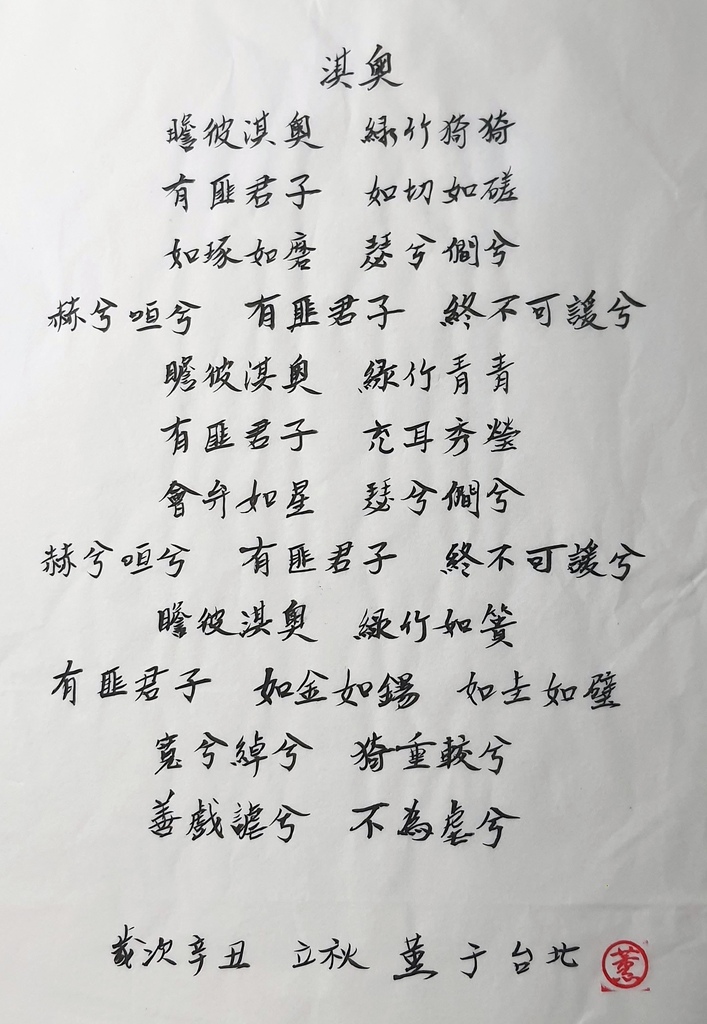 淇奧
瞻彼淇奧 綠竹猗猗
有匪君子 如切如磋
如琢如磨 瑟兮僩兮
赫兮咺兮 有匪君子 終不可諼兮
瞻彼淇奧 綠竹青青
有匪君子 充耳秀瑩
會弁如星 瑟兮僩兮
赫兮咺兮 有匪君子 終不可諼兮
瞻彼淇奧 綠竹如簀
有匪君子 如金如錫 如圭如璧
寬兮綽兮 猗重較兮
善戲謔兮 不為虐兮
歲次辛丑 立秋 于台北